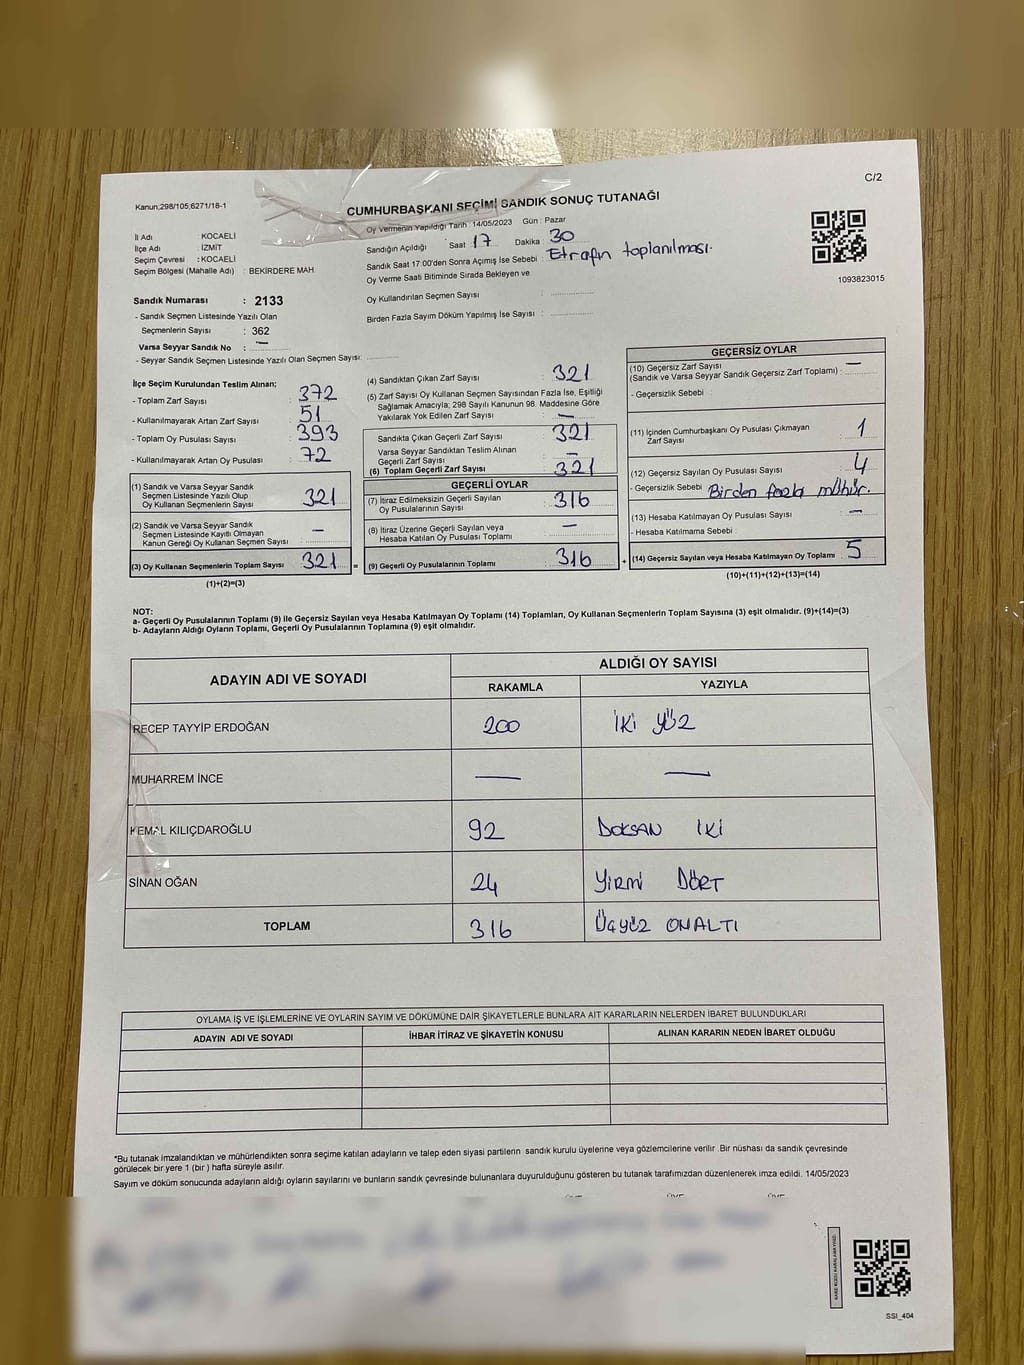 C/2
Kanun;298/105;6271/18-1
CUMHURBAŞKANI SEÇİMİ SANDIK SONUÇ TUTANAĞI
İl Adı KOCAELİ
İlçe Adı İZMİT
Seçim Çevresi : KOCAELİ
Seçim Bölgesi (Mahalle Adı) : BEKIRDERE MAH.
Oy Vermenin Yapıldığı Tarih : 14/05/2023 Gün : Pazar
Sandığın Açıldığı Saat : 17 Dakika : 30
Sandık Saat 17:00'den Sonra Açımış İse Sebebi : Etrafın toplanılması.
Oy Verme Saati Bitiminde Sırada Bekleyen ve
Oy Kullandırılan Seçmen Sayısı :
Birden Fazla Sayım Döküm Yapılmış İse Sayısı :
1093823015
Sandık Numarası : 2133
- Sandık Seçmen Listesinde Yazılı Olan
Seçmenlerin Sayısı : 362
Varsa Seyyar Sandık No : —
- Seyyar Sandık Seçmen Listesinde Yazılı Olan Seçmen Sayısı:
İlçe Seçim Kurulundan Teslim Alınan;
- Toplam Zarf Sayısı : 372
- Kullanılmayarak Artan Zarf Sayısı : 51
- Toplam Oy Pusulası Sayısı : 393
- Kullanılmayarak Artan Oy Pusulası : 72
(1) Sandık ve Varsa Seyyar Sandık
Seçmen Listesinde Yazılı Olup
Oy Kullanan Seçmenlerin Sayısı : 321
(2) Sandık ve Varsa Seyyar Sandık
Seçmen Listesinde Kayıtlı Olmayan
Kanun Gereği Oy Kullanan Seçmen Sayısı : —
(3) Oy Kullanan Seçmenlerin Toplam Sayısı : 321 =
(1)+(2)=(3)
(4) Sandıktan Çıkan Zarf Sayısı : 321
(5) Zarf Sayısı Oy Kullanan Seçmen Sayısından Fazla İse, Eşitliği
Sağlamak Amacıyla; 298 Sayılı Kanunun 98. Maddesine Göre
Yakılarak Yok Edilen Zarf Sayısı : —
Sandıkta Çıkan Geçerli Zarf Sayısı : 321
Varsa Seyyar Sandıktan Teslim Alınan
Geçerli Zarf Sayısı : —
(6) Toplam Geçerli Zarf Sayısı : 321
GEÇERLİ OYLAR
(7) İtiraz Edilmeksizin Geçerli Sayılan
Oy Pusulalarının Sayısı : 316
(8) İtiraz Üzerine Geçerli Sayılan veya
Hesaba Katılan Oy Pusulası Toplamı : —
(9) Geçerli Oy Pusulalarının Toplamı : 316 +
GEÇERSİZ OYLAR
(10) Geçersiz Zarf Sayısı
(Sandık ve Varsa Seyyar Sandık Geçersiz Zarf Toplamı) : —
- Geçersizlik Sebebi :
(11) İçinden Cumhurbaşkanı Oy Pusulası Çıkmayan
Zarf Sayısı : 1
(12) Geçersiz Sayılan Oy Pusulası Sayısı : 4
- Geçersizlik Sebebi : Birden fazla mühür.
(13) Hesaba Katılmayan Oy Pusulası Sayısı : —
- Hesaba Katılmama Sebebi :
(14) Geçersiz Sayılan veya Hesaba Katılmayan Oy Toplamı : 5
(10)+(11)+(12)+(13)=(14)
NOT:
a- Geçerli Oy Pusulalarının Toplamı (9) ile Geçersiz Sayılan veya Hesaba Katılmayan Oy Toplamı (14) Toplamları, Oy Kullanan Seçmenlerin Toplam Sayısına (3) eşit olmalıdır. (9)+(14)=(3)
b- Adayların Aldığı Oyların Toplamı, Geçerli Oy Pusulalarının Toplamına (9) eşit olmalıdır.
ADAYIN ADI VE SOYADI
ALDIĞI OY SAYISI
RAKAMLA YAZIYLA
RECEP TAYYİP ERDOĞAN 200 İKİ YÜZ
MUHARREM İNCE — —
KEMAL KILIÇDAROĞLU 92 DOKSAN İKİ
SİNAN OĞAN 24 YİRMİ DÖRT
TOPLAM 316 ÜÇYÜZ ONALTI
OYLAMA İŞ VE İŞLEMLERİNE VE OYLARIN SAYIM VE DÖKÜMÜNE DAİR ŞİKAYETLERLE BUNLARA AİT KARARLARIN NELERDEN İBARET BULUNDUKLARI
ADAYIN ADI VE SOYADI İHBAR İTİRAZ VE ŞİKAYETİN KONUSU ALINAN KARARIN NEDEN İBARET OLDUĞU
*Bu tutanak imzalandıktan ve mühürlendikten sonra seçime katılan adayların ve talep eden siyasi partilerin sandık kurulu üyelerine veya gözlemcilerine verilir .Bir nüshası da sandık çevresinde
görülecek bir yere 1 (bir ) hafta süreyle asılır.
Sayım ve döküm sonucunda adayların aldığı oyların sayılarını ve bunların sandık çevresinde bulunanlara duyurulduğunu gösteren bu tutanak tarafımızdan düzenlenerek imza edildi. 14/05/2023
SSI_404